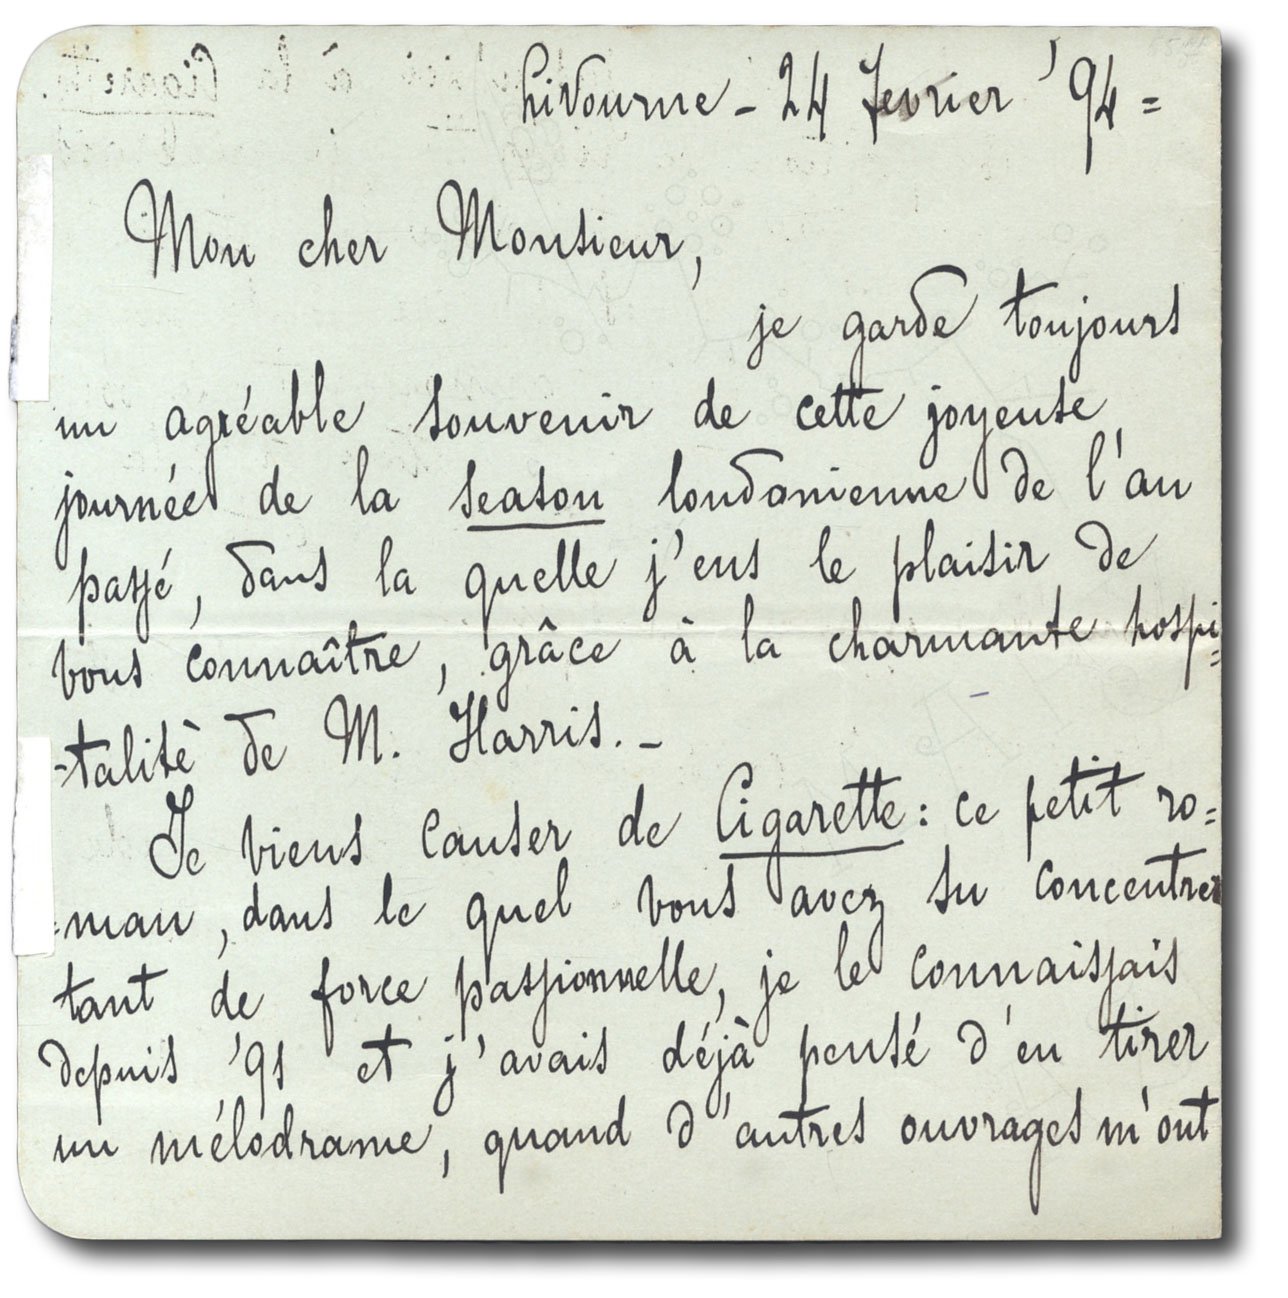 Livourne - 24 Fevrier '94 =
Mon cher Monsieur,
je garde toujours
un agréable souvenir de cette joyeuse
journée de la season londonienne de l'an
passé, dans la quelle j'eus le plaisir de
vous connaître, grâce à la charmante hospi=
-talité de M. Harris. -
Je viens causer de Cigarette : ce petit ro=
=man, dans le quel vous avez su concentrer
tant de force passionnelle, je le connaissais
depuis '91 et j'avais déjà pensé d'en tirer
un mélodrame, quand d'autres ouvrages m'ont